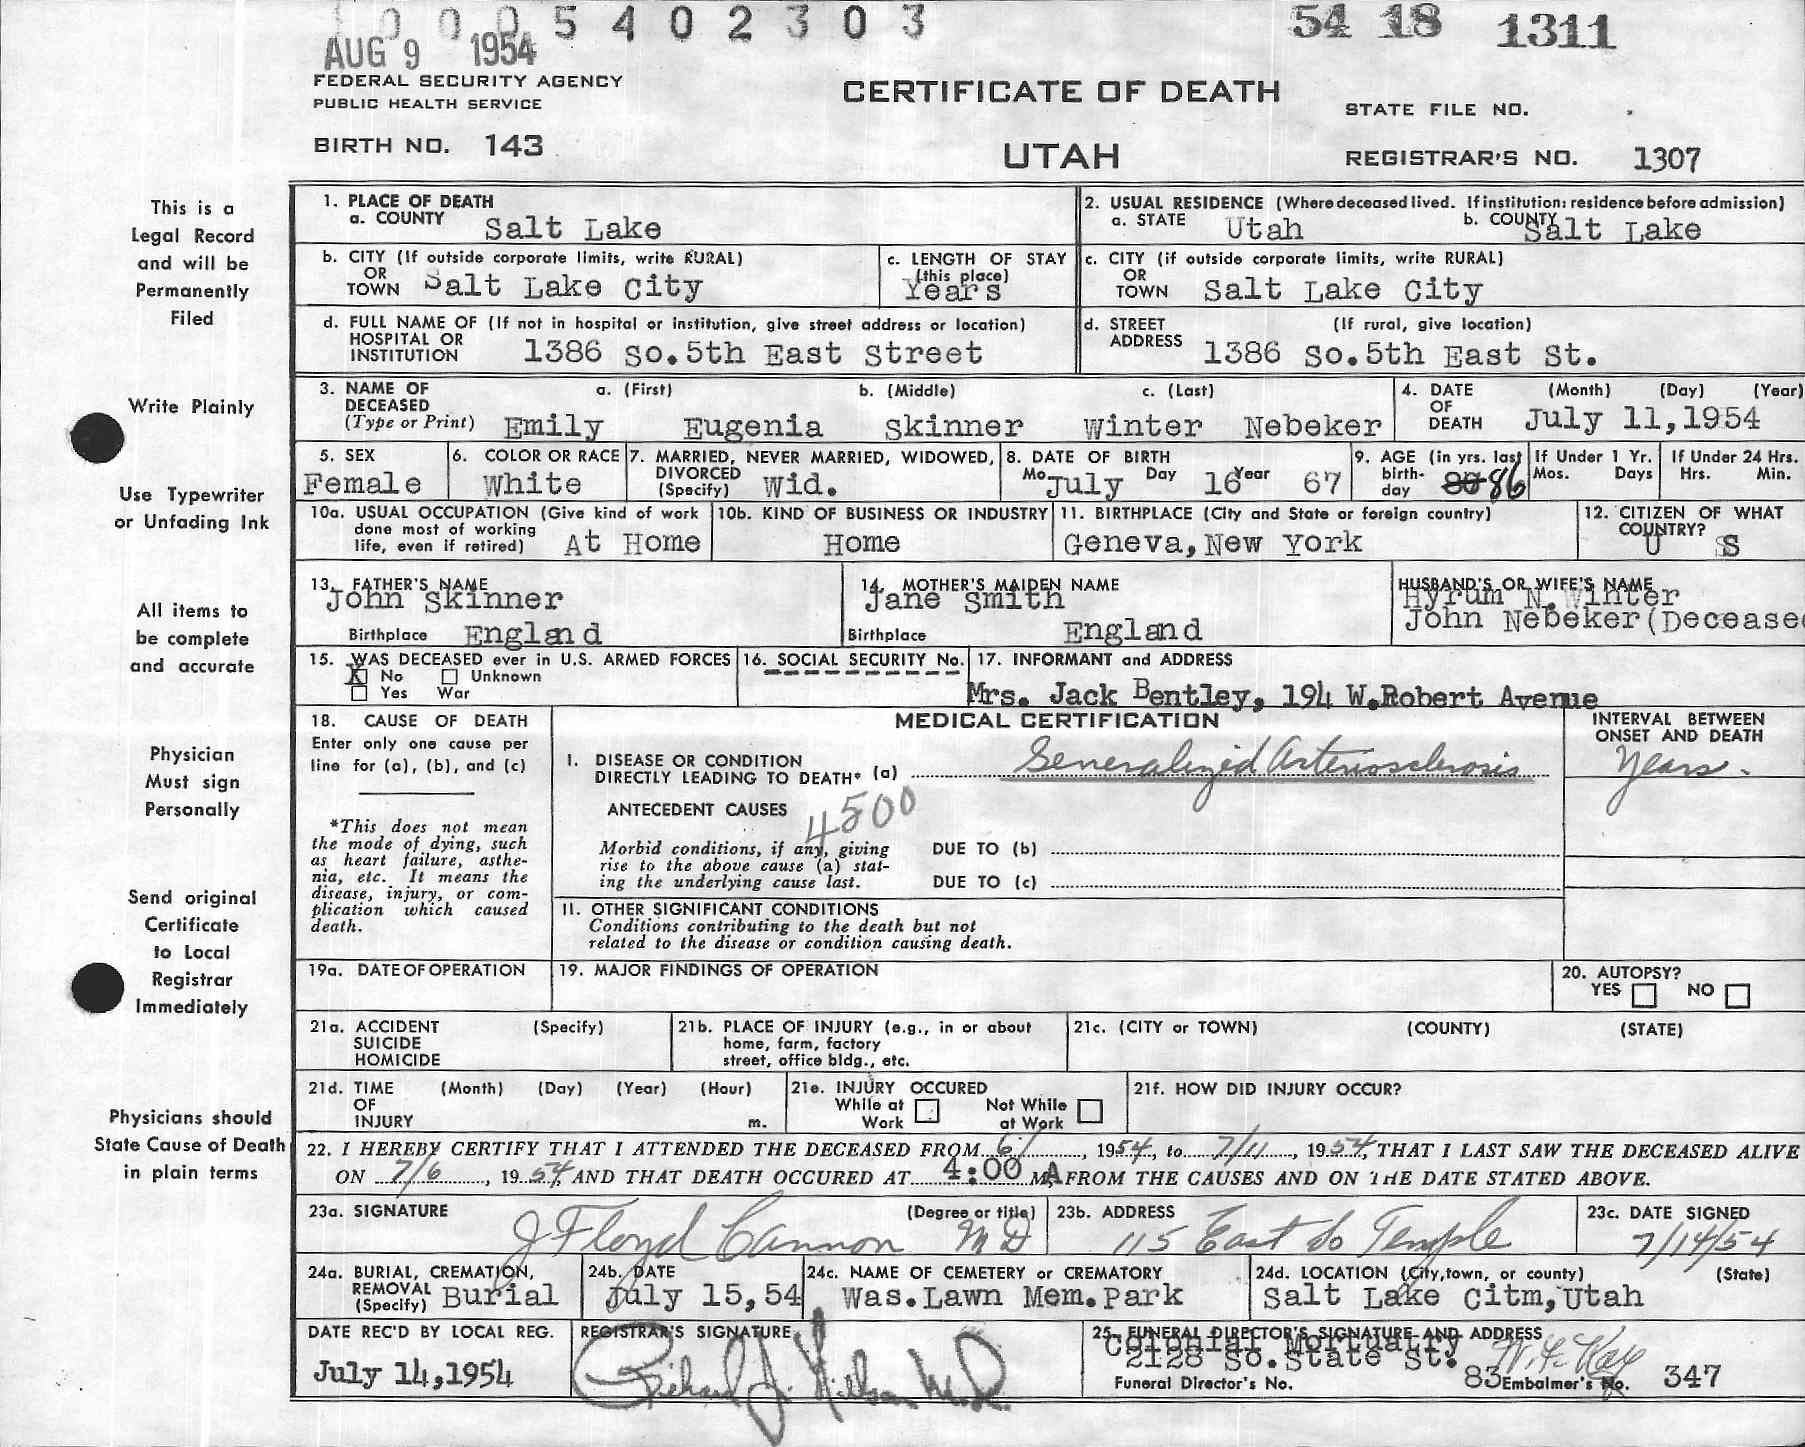 0 0 0 5 4 0 2 3 0 3
54 18 1311
AUG 9 1954
FEDERAL SECURITY AGENCY
PUBLIC HEALTH SERVICE
CERTIFICATE OF DEATH
STATE FILE NO.
BIRTH NO. 143
UTAH
REGISTRAR'S NO. 1307
This is a
Legal Record
and will be
Permanently
Filed
Write Plainly
Use Typewriter
or Unfading Ink
All items to
be complete
and accurate
Physician
Must sign
Personally
Send original
Certificate
to Local
Registrar
Immediately
Physicians should
State Cause of Death
in plain terms
1. PLACE OF DEATH
a. COUNTY Salt Lake
2. USUAL RESIDENCE (Where deceased lived. If institution: residence before admission)
a. STATE Utah b. COUNTY Salt Lake
b. CITY (If outside corporate limits, write RURAL)
OR
TOWN Salt Lake City
c. LENGTH OF STAY
(this place)
Years
c. CITY (if outside corporate limits, write RURAL)
OR
TOWN Salt Lake City
d. FULL NAME OF (If not in hospital or institution, give street address or location)
HOSPITAL OR
INSTITUTION 1386 So.5th East Street
d. STREET (If rural, give location)
ADDRESS 1386 So.5th East St.
3. NAME OF a. (First) b. (Middle) c. (Last)
DECEASED
(Type or Print) Emily Eugenia Skinner Winter Nebeker
4. DATE (Month) (Day) (Year)
OF
DEATH July 11,1954
5. SEX
Female
6. COLOR OR RACE
White
7. MARRIED, NEVER MARRIED, WIDOWED,
DIVORCED
(Specify) Wid.
8. DATE OF BIRTH
Mo. July Day 16 Year 67
9. AGE (in yrs. last
birth-
day 86
If Under 1 Yr.
Mos. Days
If Under 24 Hrs.
Hrs. Min.
10a. USUAL OCCUPATION (Give kind of work
done most of working
life, even if retired) At Home
10b. KIND OF BUSINESS OR INDUSTRY
Home
11. BIRTHPLACE (City and State or foreign country)
Geneva,New York
12. CITIZEN OF WHAT
COUNTRY?
U S
13. FATHER'S NAME
John Skinner
Birthplace England
14. MOTHER'S MAIDEN NAME
Jane Smith
Birthplace England
HUSBAND'S OR WIFE'S NAME
Hyrum N. Winter
John Nebeker(Decease
15. WAS DECEASED ever in U.S. ARMED FORCES
X No Unknown
Yes War
16. SOCIAL SECURITY No.
17. INFORMANT and ADDRESS
Mrs. Jack Bentley, 194 W.Robert Avenue
18. CAUSE OF DEATH
Enter only one cause per
line for (a), (b), and (c)
*This does not mean
the mode of dying, such
as heart failure, asthe-
nia, etc. It means the
disease, injury, or com-
plication which caused
death.
MEDICAL CERTIFICATION
I. DISEASE OR CONDITION
DIRECTLY LEADING TO DEATH* (a) Generalized Arteriosclerosis
ANTECEDENT CAUSES
4500
Morbid conditions, if any, giving
rise to the above cause (a) stat-
ing the underlying cause last.
DUE TO (b)
DUE TO (c)
II. OTHER SIGNIFICANT CONDITIONS
Conditions contributing to the death but not
related to the disease or condition causing death.
INTERVAL BETWEEN
ONSET AND DEATH
Years.
19a. DATE OF OPERATION
19. MAJOR FINDINGS OF OPERATION
20. AUTOPSY?
YES NO
21a. ACCIDENT (Specify)
SUICIDE
HOMICIDE
21b. PLACE OF INJURY (e.g., in or about
home, farm, factory
street, office bldg., etc.
21c. (CITY or TOWN) (COUNTY) (STATE)
21d. TIME (Month) (Day) (Year) (Hour)
OF
INJURY m.
21e. INJURY OCCURED
While at Not While
Work at Work
21f. HOW DID INJURY OCCUR?
22. I HEREBY CERTIFY THAT I ATTENDED THE DECEASED FROM 6/ , 1954, to 7/11, 1954, THAT I LAST SAW THE DECEASED ALIVE
ON 7/6, 1954, AND THAT DEATH OCCURED AT 4:00 A M, FROM THE CAUSES AND ON THE DATE STATED ABOVE.
23a. SIGNATURE (Degree or title)
J Floyd Cannon MD
23b. ADDRESS
115 East So Temple
23c. DATE SIGNED
7/14/54
24a. BURIAL, CREMATION,
REMOVAL
(Specify) Burial
24b. DATE
July 15,54
24c. NAME OF CEMETERY or CREMATORY
Was.Lawn Mem.Park
24d. LOCATION (City,town, or county) (State)
Salt Lake Citm,Utah
DATE REC'D BY LOCAL REG.
July 14,1954
REGISTRAR'S SIGNATURE
Richard J.
25. FUNERAL DIRECTOR'S SIGNATURE AND ADDRESS
Colonial Mortuary
2128 So.State St.
Funeral Director's No. 83 Embalmer's No. 347